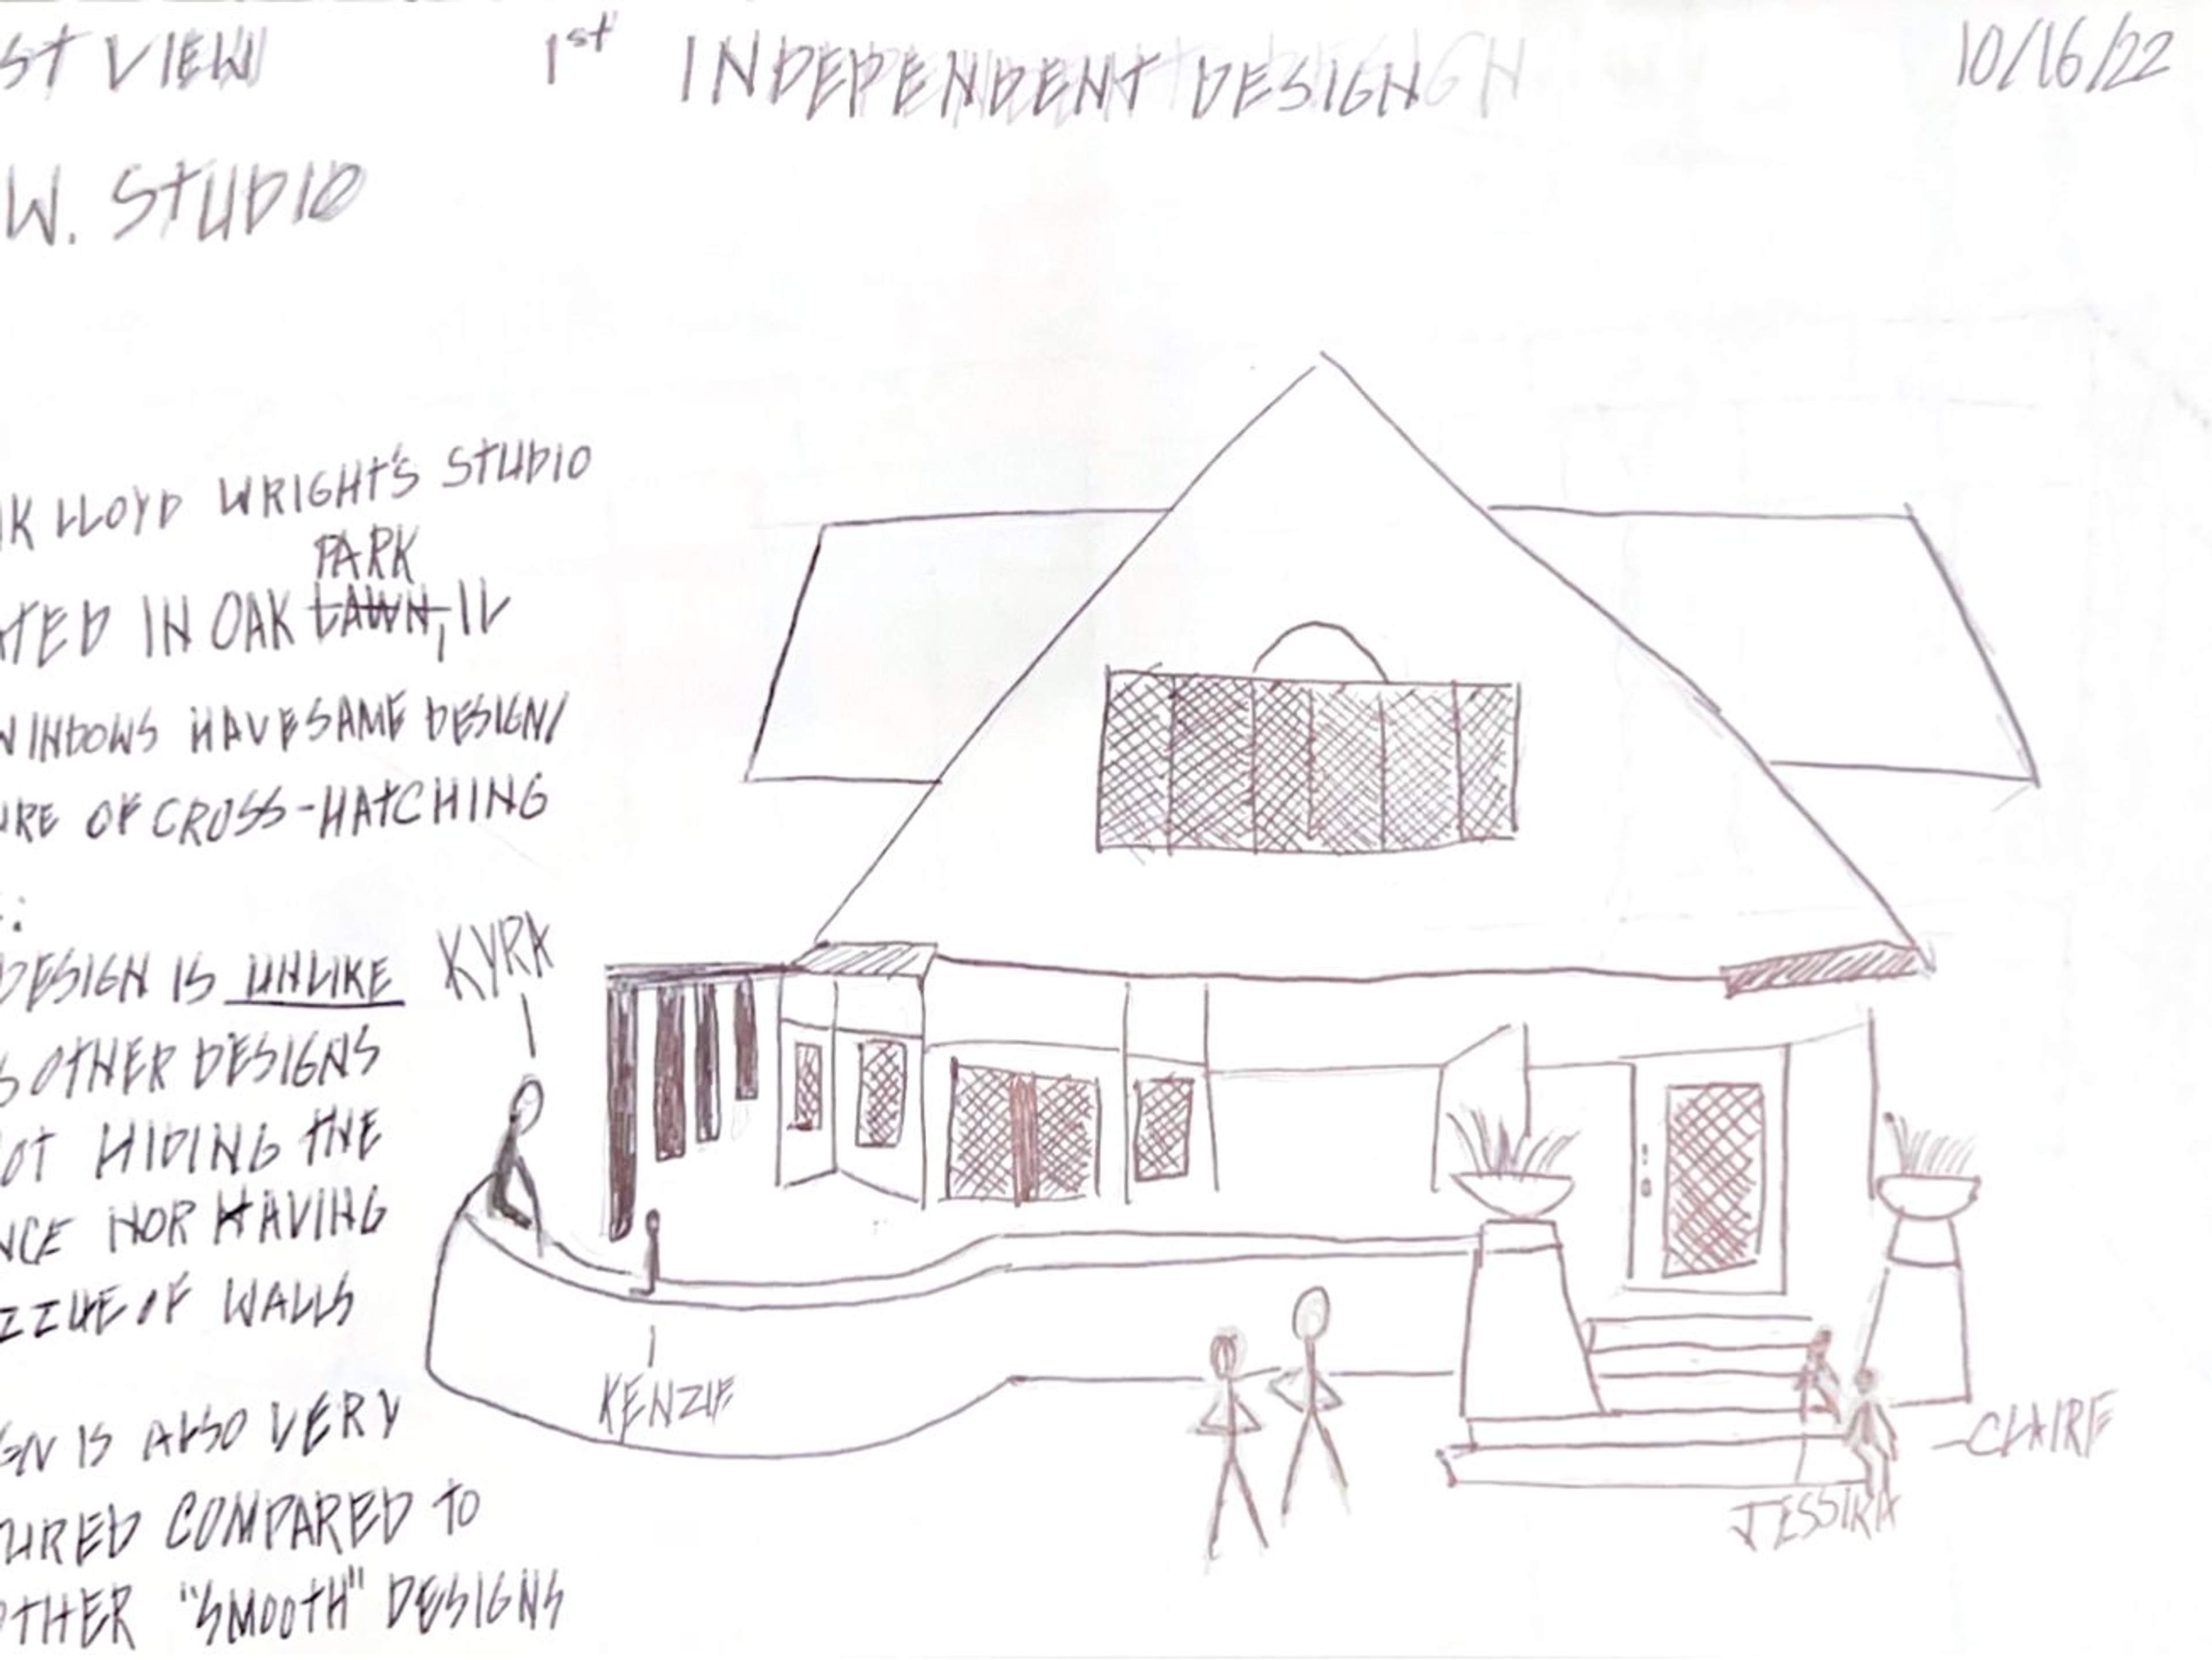 ST VIEW
1st INDEPENDENT DESIGN
10/16/22
W. STUDIO
K LLOYD WRIGHT'S STUDIO
PARK
TED IN OAK LAWN, IL
WINDOWS HAVE SAME DESIGN/
URE OF CROSS-HATCHING
:
DESIGN IS UNLIKE
KYRA
S OTHER DESIGNS
OT HIDING THE
NCE NOR HAVING
OF WALLS
KENZIE
GN IS ALSO VERY
CLAIRE
TURED COMPARED TO
JESSIKA
OTHER "SMOOTH" DESIGNS